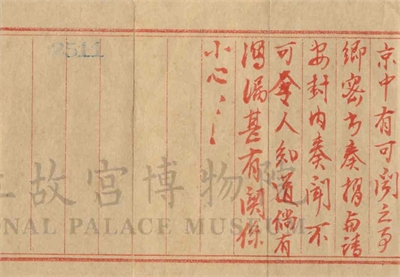 京中有可聞之事
卿密書奏摺与請
安封內奏聞不
可令人知道倘有
洩漏甚有關係
小心〻〻
2511
故宮博物院
NAL PALACE MUSEUM